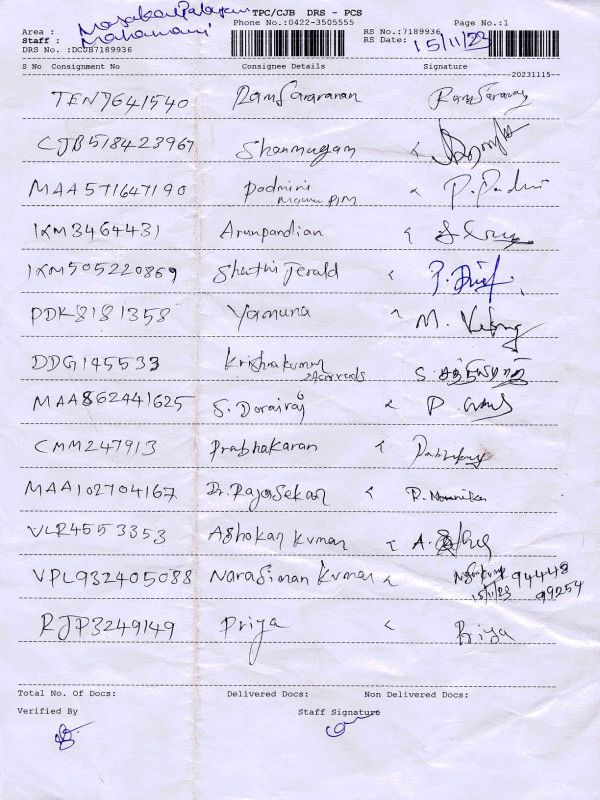 TPC/CJB DRS - PCS
Phone No.:0422-3505555 Page No.:1
Area : Masakalipalayam
Staff : Mahamani
RS No.:7189936
RS Date: 15/11/23
DRS No. :DCJB7189936
S No Consignment No Consignee Details Signature
--20231115--
TEN7641540 Ramsaravanan Ramsaravan
CJB518423967 Shanmugam
MAA571647190 Padmini P. Padmi
IKM3464431 Arunpandian
IKM505220869 Shathi Jerald
PDK8181358 Yamuna
DDG145533 Krishnakumar
MAA862441625 S. Dorairaj
CMM247913 Prabhakaran
MAA102704167 Dr. Rajasekar
VLR4553353 Ashokan kumar
VPL932405088 Narasiman kumar 94448
15/11/23 99254
RJP3249149 Priya Priya
Total No. Of Docs: Delivered Docs: Non Delivered Docs:
Verified By Staff Signature